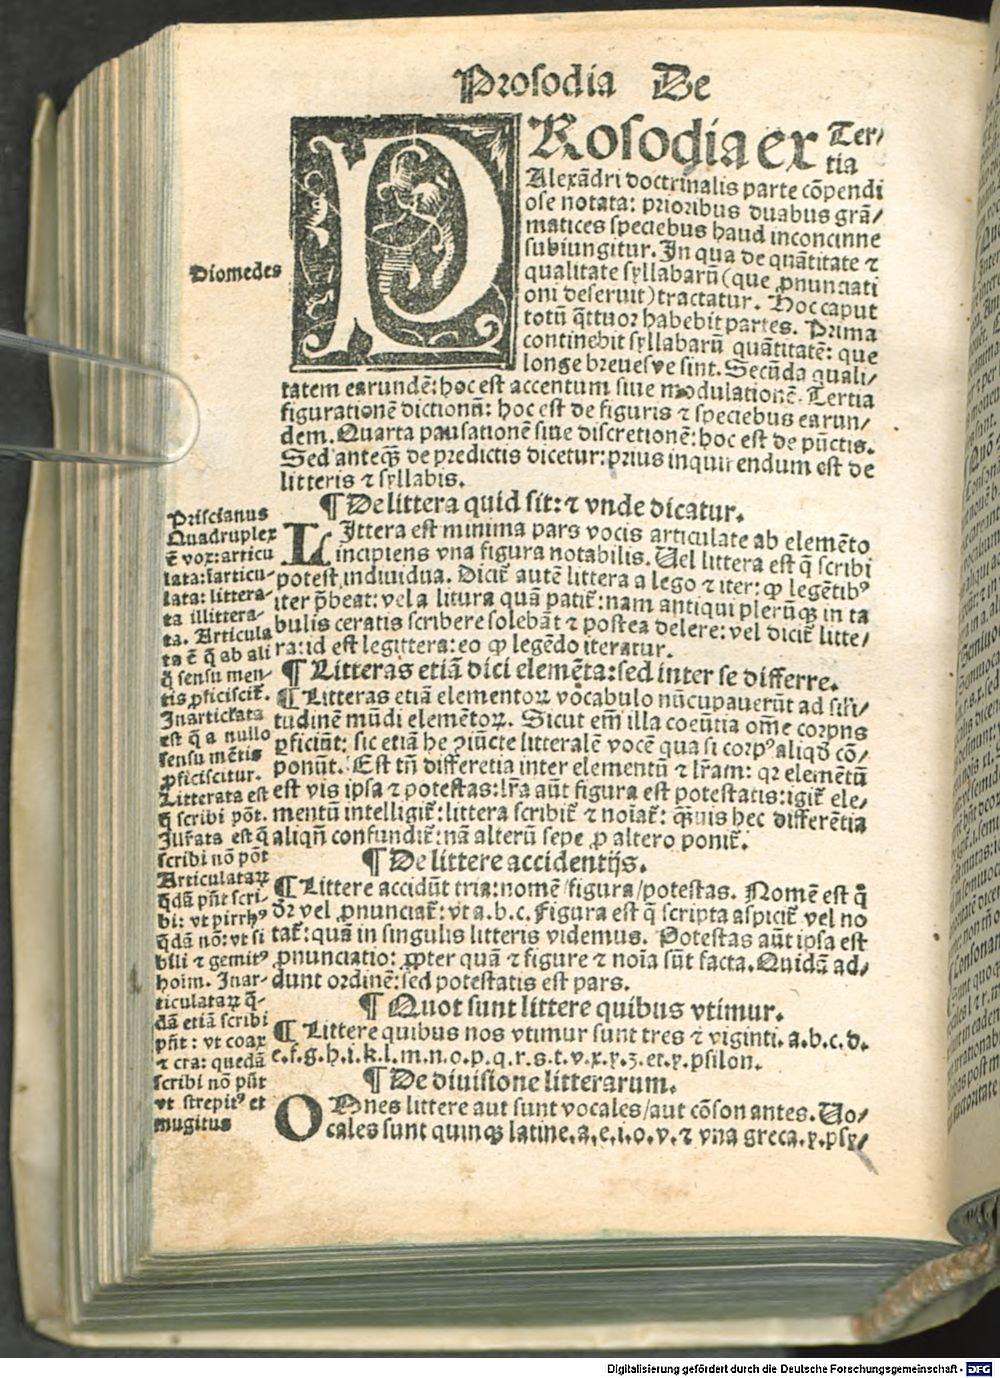 Prosodia De
PRosodia ex Ter/
tia
Alexādri doctrinalis parte cōpendi
ose notata: prioribus duabus grā/
matices speciebus haud inconcinne
subiungitur. In qua de quātitate ⁊
qualitate syllabarū (que ꝓnunciati
oni deseruit) tractatur. Hoc caput
totū q̄ttuor habebit partes. Prima
continebit syllabarū quātitatē: que
longe breues ve sint. Secūda quali/
tatem earundē: hoc est accentum siue modulationē. Tertia
figurationē dictionū: hoc est de figuris ⁊ speciebus earun/
dem. Quarta pausationē siue discretionē: hoc est de pūctis.
Sed anteqꝫ de predictis dicetur: prius inquirendum est de
litteris ⁊ syllabis.
Diomedes
¶ De littera quid sit: ⁊ vnde dicatur.
LIttera est minima pars vocis articulate ab elemēto
incipiens vna figura notabilis. Uel littera est q̄ scribi
potest indiuidua. Dicit᷑ autē littera a lego ⁊ iter: ꝙ legētibꝰ
iter p̄beat: vel a litura quā patit᷑: nam antiqui plerūqꝫ in ta
bulis ceratis scribere solebāt ⁊ postea delere: vel dicit᷑ litte/
ra: id est legittera: eo ꝙ legēdo iteratur.
¶ Litteras etiā dici elemēta: sed inter se differre.
¶ Litteras etiā elementoꝝ vocabulo nūcupauerūt ad sil'i/
tudinē mūdi elemētoꝝ. Sicut em̄ illa coeūtia om̄e corpus
ꝑficiūt: sic etiā he ꝯiūcte litteralē vocē quasi corpꝰ aliqđ cō/
ponūt. Est tn̄ differetia inter elementū ⁊ lr̄am: qꝛ elementū
est vis ipsa ⁊ potestas: lr̄a aūt figura est potestatis: igit᷑ ele/
mentū intelligit᷑: littera scribit᷑ ⁊ noīat᷑: qꝫuis hec differētia
aliqn̄ confundit᷑: nā alterū sepe ꝓ altero ponit᷑.
¶ De littere accidentijs.
¶ Littere accidūt tria: nomē/figura/potestas. Nomē est q̊
dr̄ vel ꝓnunciat᷑: vt a.b.c. Figura est q̄ scripta aspicit᷑ vel no
tat᷑: quā in singulis litteris videmus. Potestas aūt ipsa est
ꝓnunciatio: ꝓpter quā ⁊ figure ⁊ noīa sūt facta. Quidā ad/
dunt ordinē: sed potestatis est pars.
¶ Quot sunt littere quibus vtimur.
¶ Littere quibus nos vtimur sunt tres ⁊ viginti. a.b.c.d.
e.f.g.h.i.k.l.m.n.o.p.q.r.s.t.v.x.y.ʒ.et.y.psilon.
¶ De diuisione litterarum.
OMnes littere aut sunt vocales/aut cōsonantes. Uo/
cales sunt quinqꝫ latine.a.e.i.o.v.⁊ vna greca.y.psy/
Priscianus
Quadruplex
ē vox: articu
lata: īarticu-
lata: littera-
ta illittera-
ta. Articula
ta ē q̄ ab ali
q̊ sensu men-
tis ꝓficiscit᷑.
Inarticl'ata
est q̄ a nullo
sensu mētis
ꝓficiscitur.
Litterata est
q̄ scribi pōt.
Illr̄ata est q̄
scribi nō pōt
Articulataꝝ
q̄dā pn̄t scri-
bi: vt pirrhꝰ
q̄dā nō: vt si
bili ⁊ gemitꝰ
hoīm. Inar-
ticulataꝝ q̄-
dā etiā scribi
pn̄t: vt coax
⁊ cra: quedā
scribi nō pn̄t
vt strepitꝰ et
mugitus
Digitalisierung gefördert durch die Deutsche Forschungsgemeinschaft - DFG